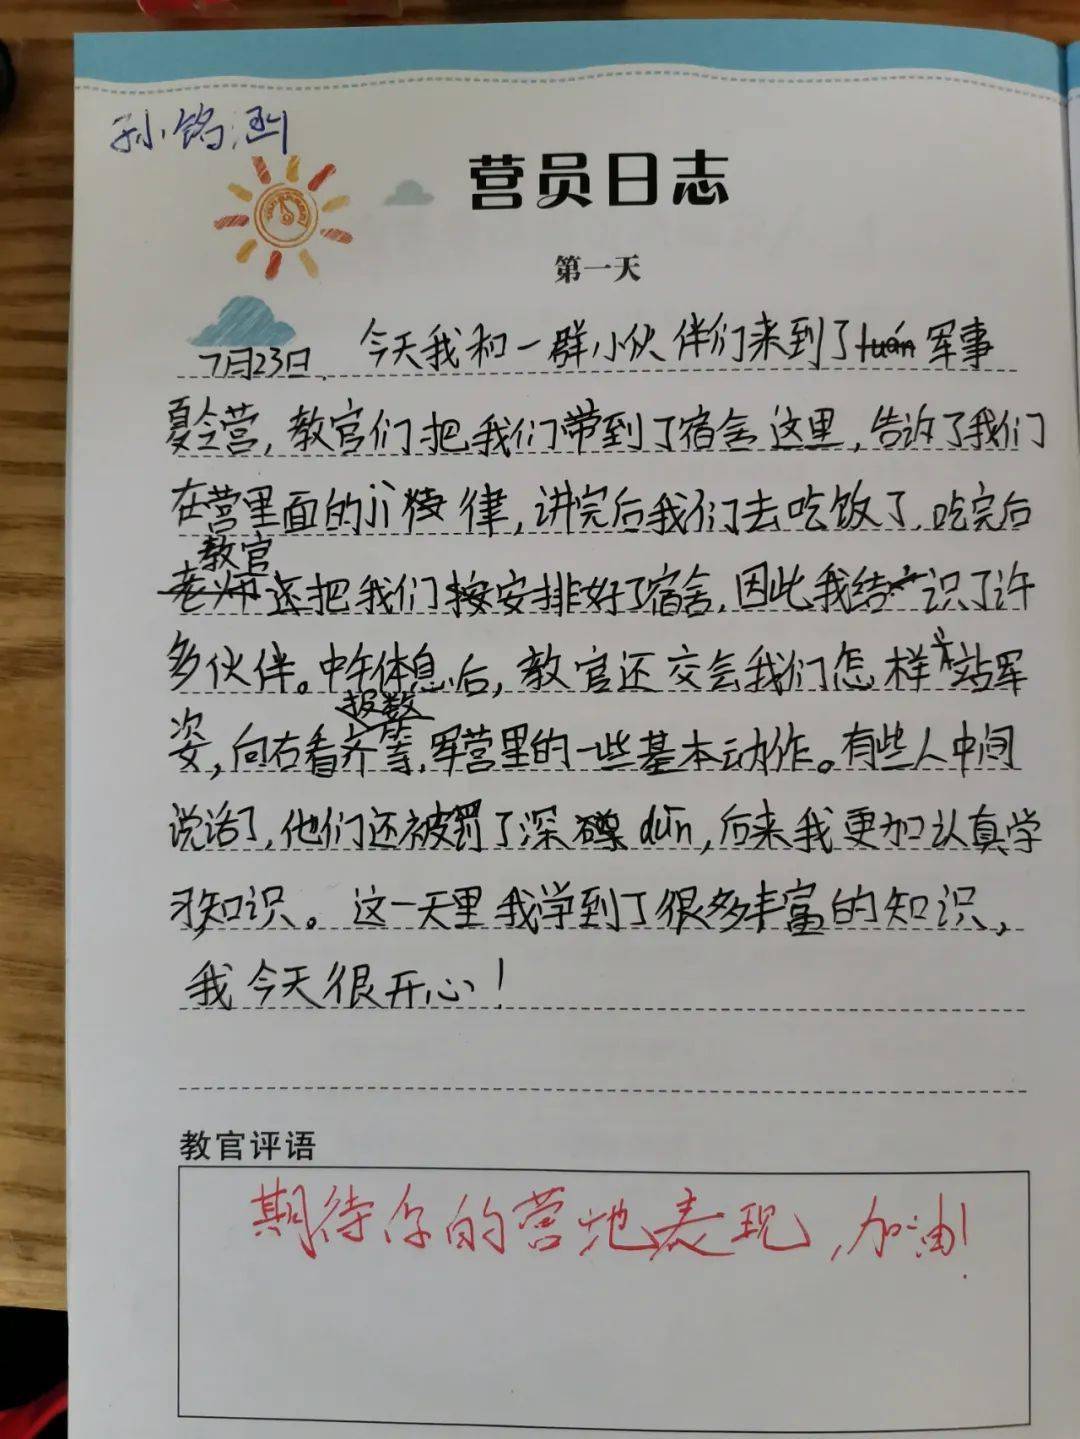 孙铭涵
营员日志
第一天
7月23日. 今天我和一群小伙伴们来到了tuán军事
夏令营,教官们把我们带到了宿舍这里,告诉了我们
在营里面的jì律,讲完后我们去吃饭了.吃完后
教官
老师还把我们按安排好了宿舍,因此我结识了许
多伙伴。中午体息后,教官还交会我们怎样站军
报数
姿,向右看齐等,军营里的一些基本动作。有些人中间
说话了,他们还被罚了深dūn,后来我更加认真学
习知识。这一天里我学到了很多丰富的知识,
我今天很开心!
教官评语
期待你的营地表现,加油!